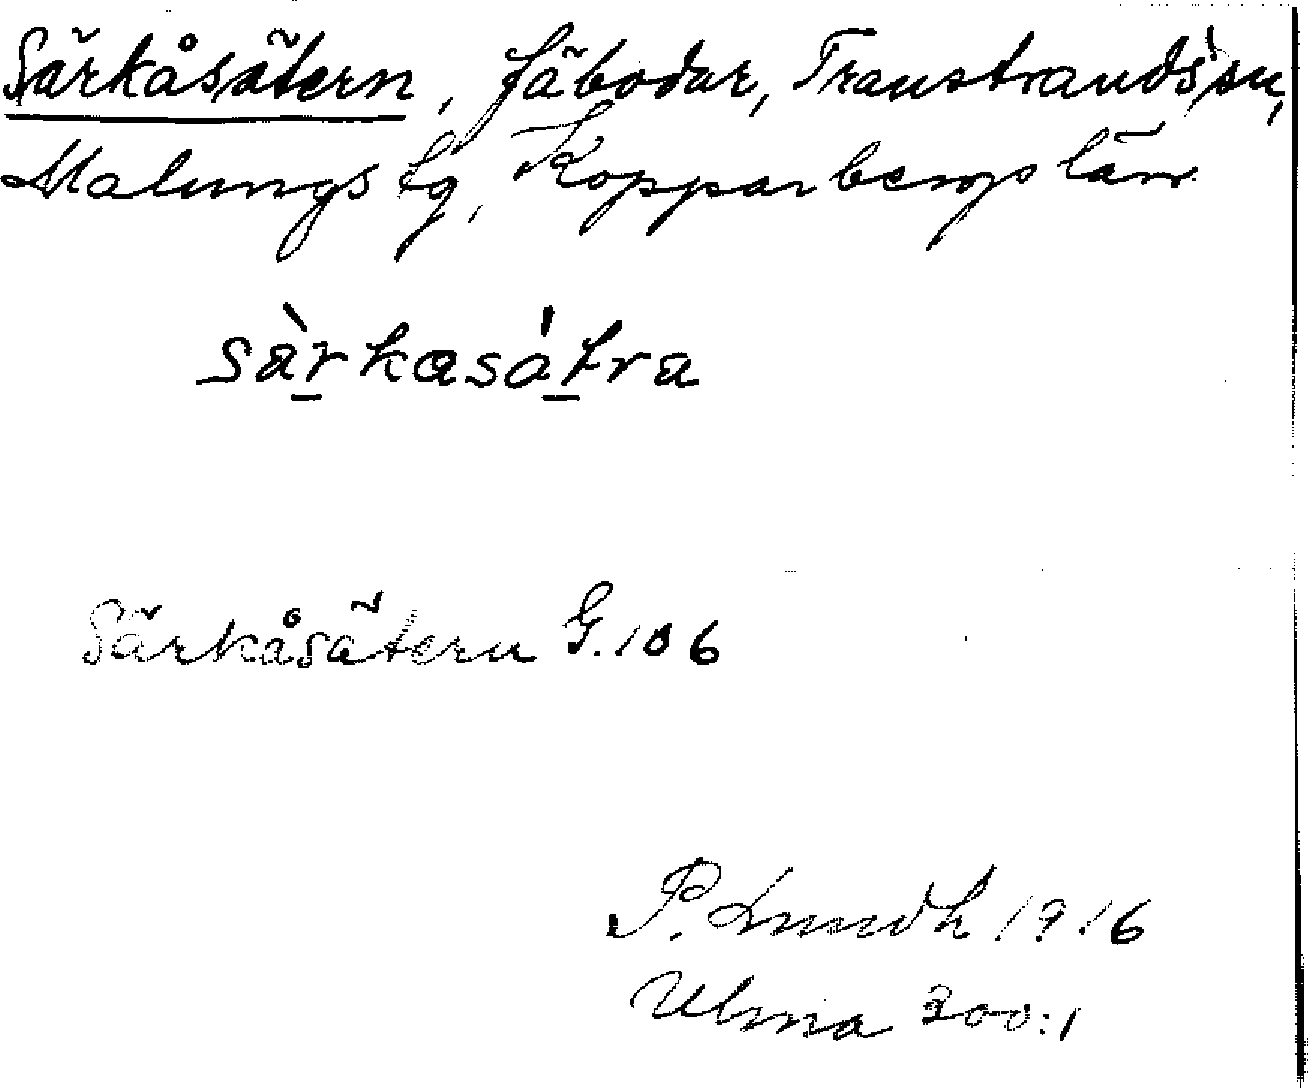 Särkåsätern, fäbodar, Transtrands sn,
Malungs tg, Kopparbergs län
sàrkasátra
Särkåsätern G. 106
P. Lundh 1916
Ulma 300:1